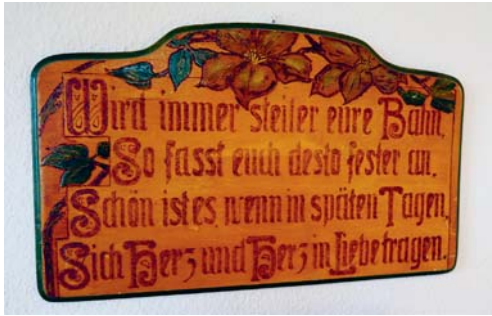 Wird immer steiler eure Bahn,
So fasst euch desto fester an.
Schön ist es, wenn in späten Tagen,
Sich Herz und Herz in Liebe tragen.